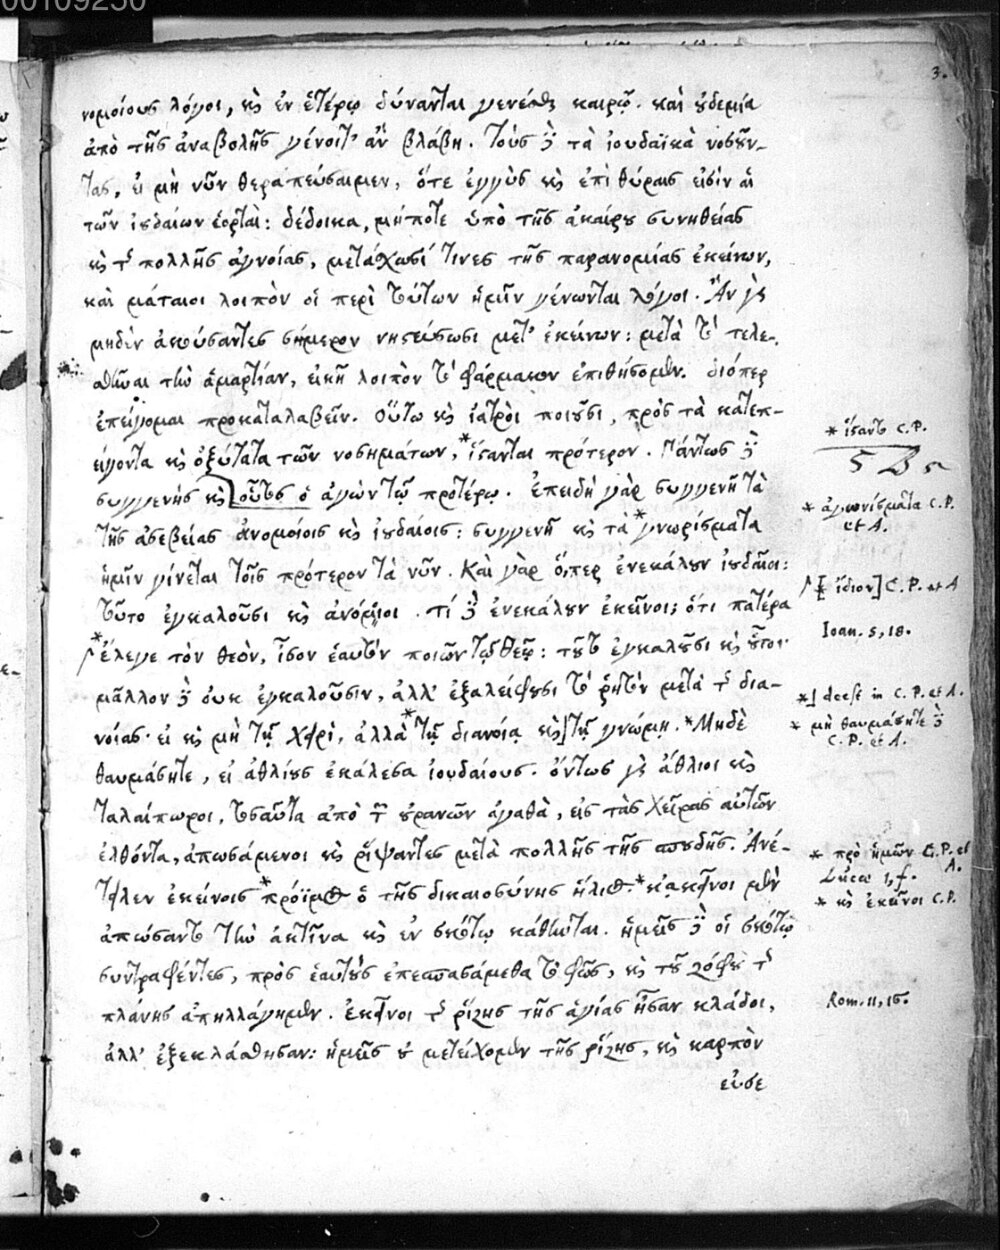 00109250
3.
νομοίους λόγοι, κὶ ἐν ἑτέρῳ δύνανται γενέσθαι καιρῷ. καὶ ȣ̓δεμία
ἀπὸ τῆς ἀναβολῆς γένοιτ' ἂν βλάβη. τοὺς δὲ τὰ ἰουδαϊκὰ νοσȣ͂ν-
τας, εἰ μὴ νῦν θεραπεύσαιμεν, ὅτε ἐγγὺς κὶ ἐπὶ θύραις εἰσὶν αἱ
τῶν ἰȣδαίων ἑορταί: δέδοικα, μήποτε ὑπὸ τῆς ἀκαίρȣ συνηθείας
κὶ τ͂ πολλῆς ἀγνοίας, μετάχωσί τινες τῆς παρανομίας ἐκείνων,
καὶ μάταιοι λοιπὸν οἱ περὶ τούτων ἡμῖν γένωνται λόγοι. Ἂν γὰρ
μηδὲν ἀκούσαντες σήμερον νηστεύσωσι μετ' ἐκείνων: μετὰ τὸ τελε-
σθῆναι τὴν ἁμαρτίαν, εἰκῆ λοιπὸν τὸ φάρμακον ἐπιθήσομεν. διόπερ
ἐπείγομαι προκαταλαβεῖν. Οὕτω κὶ ἰατροὶ ποιοῦσι, πρὸς τὰ κατεπ-
είγοντα κὶ ὀξύτατα τῶν νοσημάτων, * ἵσανται πρότερον. Πάντως δὲ
συγγενὴς κὶ οὗτος ὁ ἀγὼν τῷ προτέρῳ. Ἐπειδὴ γὰρ συγγενῆ τὰ
τῆς ἀσεβείας ἀνομοίοις κὶ ἰȣδαίοις: συγγενῆ κὶ τὰ * γνωρίσματα
ἡμῖν γίνεται τοῖς πρότερον τὰ νῦν. Καὶ γὰρ ὅπερ ἐνεκάλȣν ἰȣδαῖοι:
τοῦτο ἐγκαλοῦσι κὶ ἀνόμοιοι. τί δὲ ἐνεκάλȣν ἐκεῖνοι; ὅτι πατέρα
* ἔλεγε τὸν θεὸν, ἶσον ἑαυτὸν ποιῶν τῷ Θεῷ: τȣ͂το ἐγκαλȣ͂σι κὶ ȣ̔͂τοι·
μᾶλλον δὲ ȣ̓κ ἐγκαλοῦσιν, ἀλλ' ἐξαλείφȣσι τὸ ῥητὸν μετὰ τ͂ δια-
νοίας· εἰ κὶ μὴ τῇ χειρὶ, ἀλλὰ * τῇ διανοίᾳ κὶ] τῇ γνώμῃ. * Μηδὲ
θαυμάσητε, εἰ ἀθλίȣς ἐκάλεσα ἰουδαίους. ὄντως γὰρ ἄθλιοι κὶ
ταλαίπωροι, τοσαῦτα ἀπὸ τ͂ ȣ̓ρανῶν ἀγαθὰ, εἰς τὰς χεῖρας αὐτῶν
ἐλθόντα, ἀπωσάμενοι κὶ ῥίψαντες μετὰ πολλῆς τῆς σπουδῆς. Ἀνέ-
τειλεν ἐκείνοις * πρόϊμος ὁ τῆς δικαιοσύνης ἥλιος. * κᾳκεῖνοι μὲν
ἀπώσαντο τὴν ἀκτῖνα κὶ ἐν σκότῳ κάθηνται. ἡμεῖς δὲ οἱ σκότῳ
συντραφέντες, πρὸς ἑαυτοὺς ἐπεσπασάμεθα τὸ φῶς, κὶ τοῦ ζόφȣ τ͂
πλάνης ἀπηλλάγημεν. ἐκεῖνοι τ͂ ῥίζης τῆς ἁγίας ἦσαν κλάδοι,
ἀλλ' ἐξεκλάσθησαν: ἡμεῖς ȣ̓ μετείχομεν τῆς ῥίζης, κὶ καρπὸν
εὐσε
* ἵσαντο C.P.
* ἀγωνίσματα C.P.
et A.
[* ἴδιον] C.P. et A
Ioan. 5, 18.
*] deest in C.P. et A.
* μὴ θαυμάσητε δὲ
C.P. et A.
* πρὸ ἡμῶν C.P. et
A.
* κὶ ἐκεῖνοι C.P.
Rom. 11, 16.